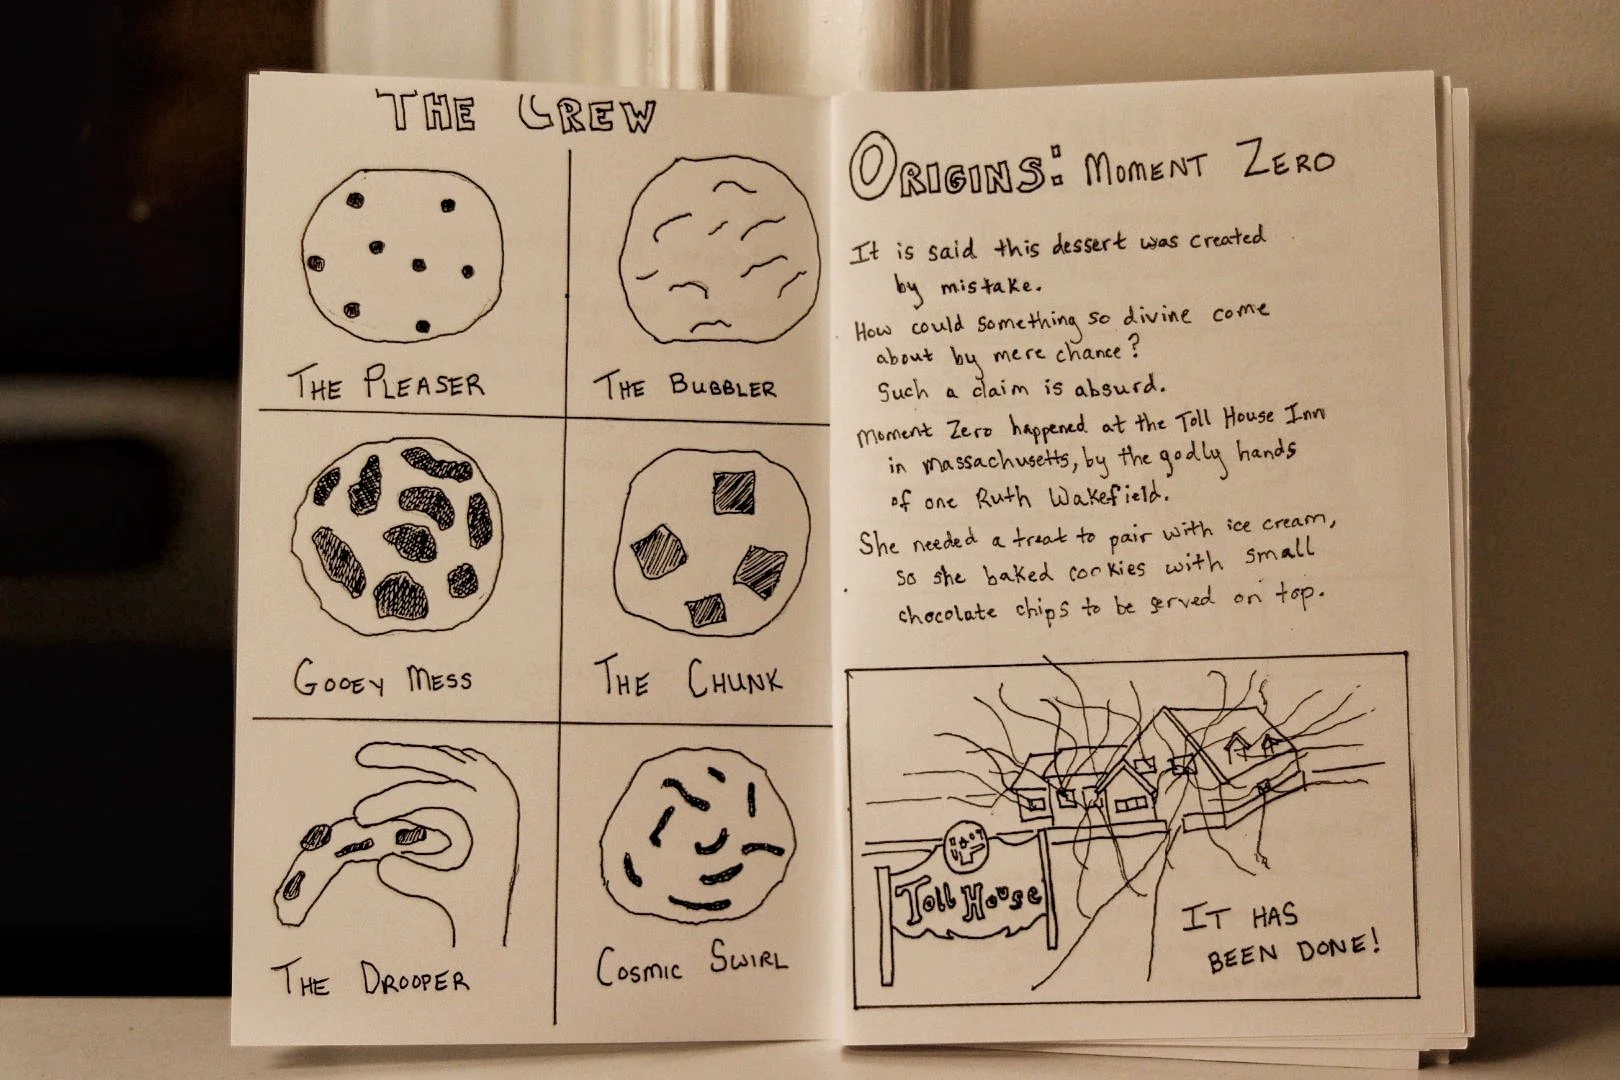 THE CREW
THE PLEASER
THE BUBBLER
GOOEY MESS
THE CHUNK
THE DROOPER
COSMIC SWIRL
ORIGINS: MOMENT ZERO
It is said this dessert was created
by mistake.
How could something so divine come
about by mere chance?
Such a claim is absurd.
Moment Zero happened at the Toll House Inn
in Massachusetts, by the godly hands
of one Ruth Wakefield.
She needed a treat to pair with ice cream,
so she baked cookies with small
chocolate chips to be served on top.
Toll House
IT HAS
BEEN DONE!